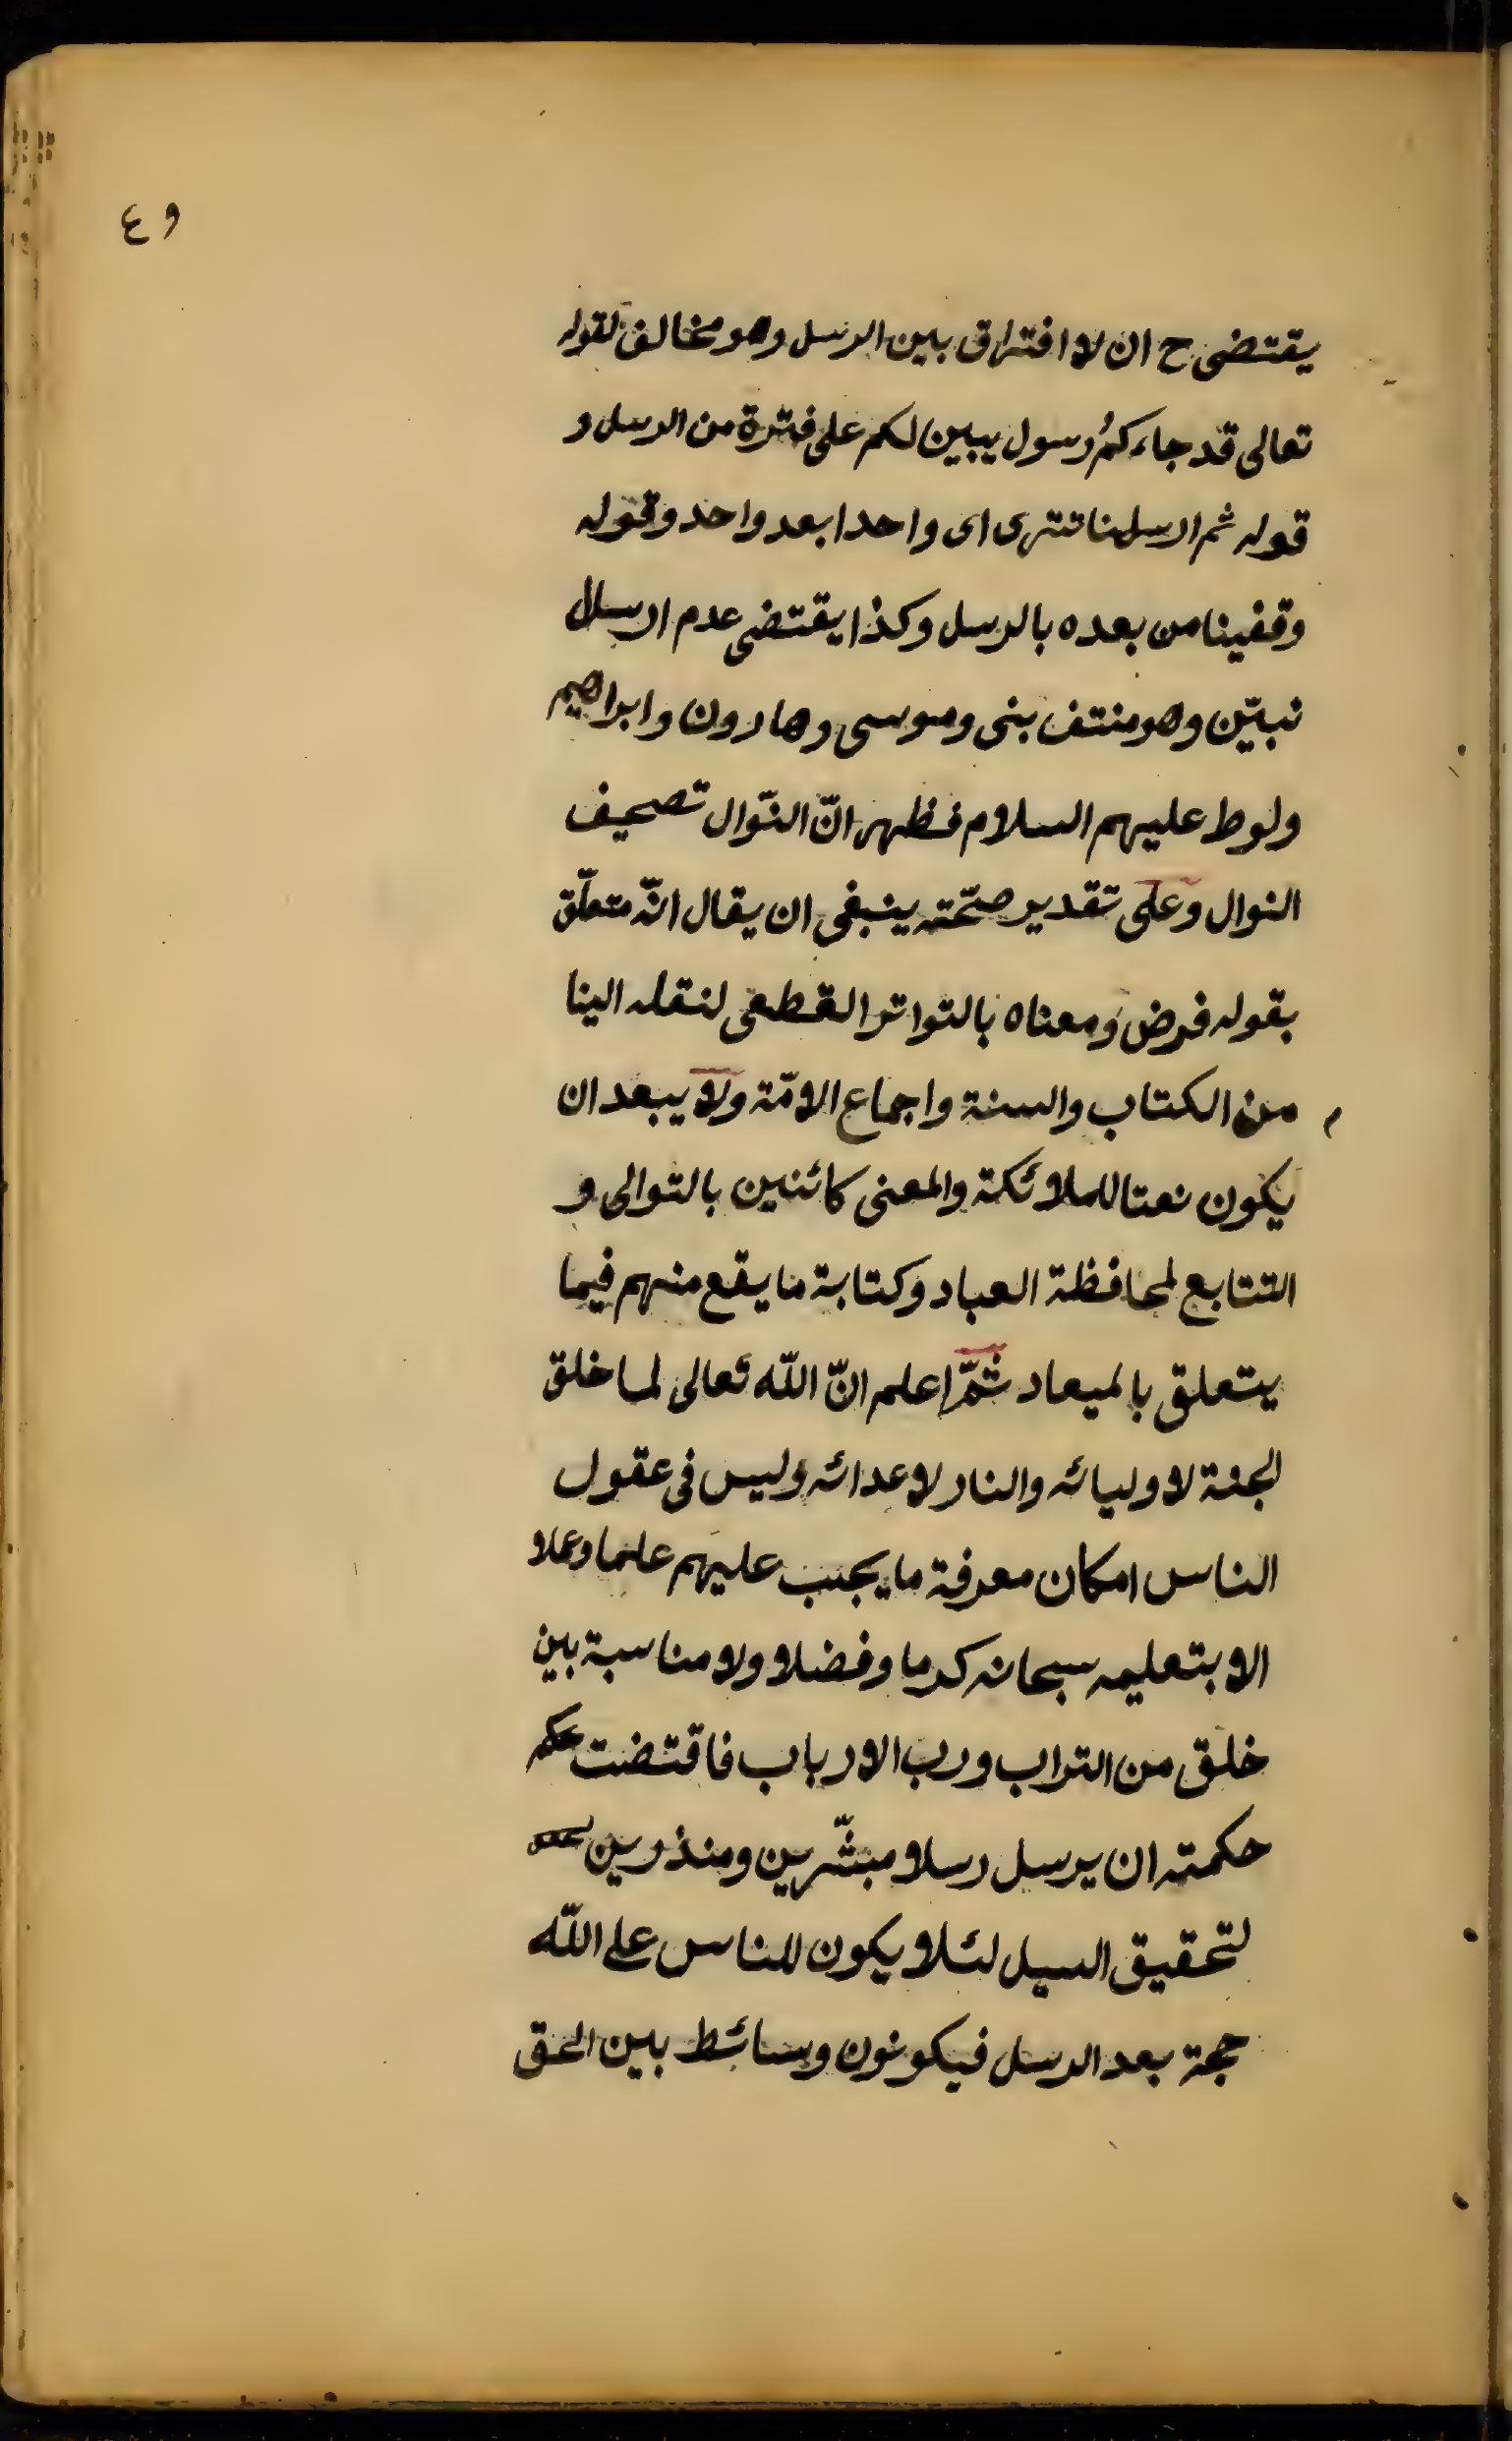 ٤٩
يقتضى ح ان لا افتراق بين الرسل وهو مخالف لقوله
تعالى قد جاءكم رسول يبين لكم على فترة من الرسل و
قوله ثم ارسلنا تترى اى واحدا بعد واحد وقوله
وقفينا من بعده بالرسل وكذا يقتضى عدم ارسال
نبيّن وهو منتف بنى وموسى وهارون وابراهيم
ولوط عليهم السلام فظهر انّ التّوال تصحيف
النوال وعلى تقدير صحّته ينبغى ان يقال انّه متعلّق
بقوله فرض ومعناه بالتواتر القطعى لنقله الينا
من الكتاب والسنة واجماع الامّة ولا يبعد ان
يكون نعتا للملائكة والمعنى كائنين بالتوالى و
التتابع لمحافظة العباد وكتابة ما يقع منهم فيما
يتعلق بالميعاد ثمّ اعلم انّ اللّه تعالى لما خلق
الجنة لاوليائه والنار لاعدائه وليس فى عقول
الناس امكان معرفة ما يجب عليهم علما وعملا
الا بتعليمه سبحانه كرما وفضلا ولا مناسبة بين
خلق من التراب ورب الارباب فاقتضت
حكمته ان يرسل رسلا مبشّرين ومنذرين
لتحقيق السبل لئلا يكون للناس على اللّه
حجة بعد الرسل فيكونون وسائط بين الحق